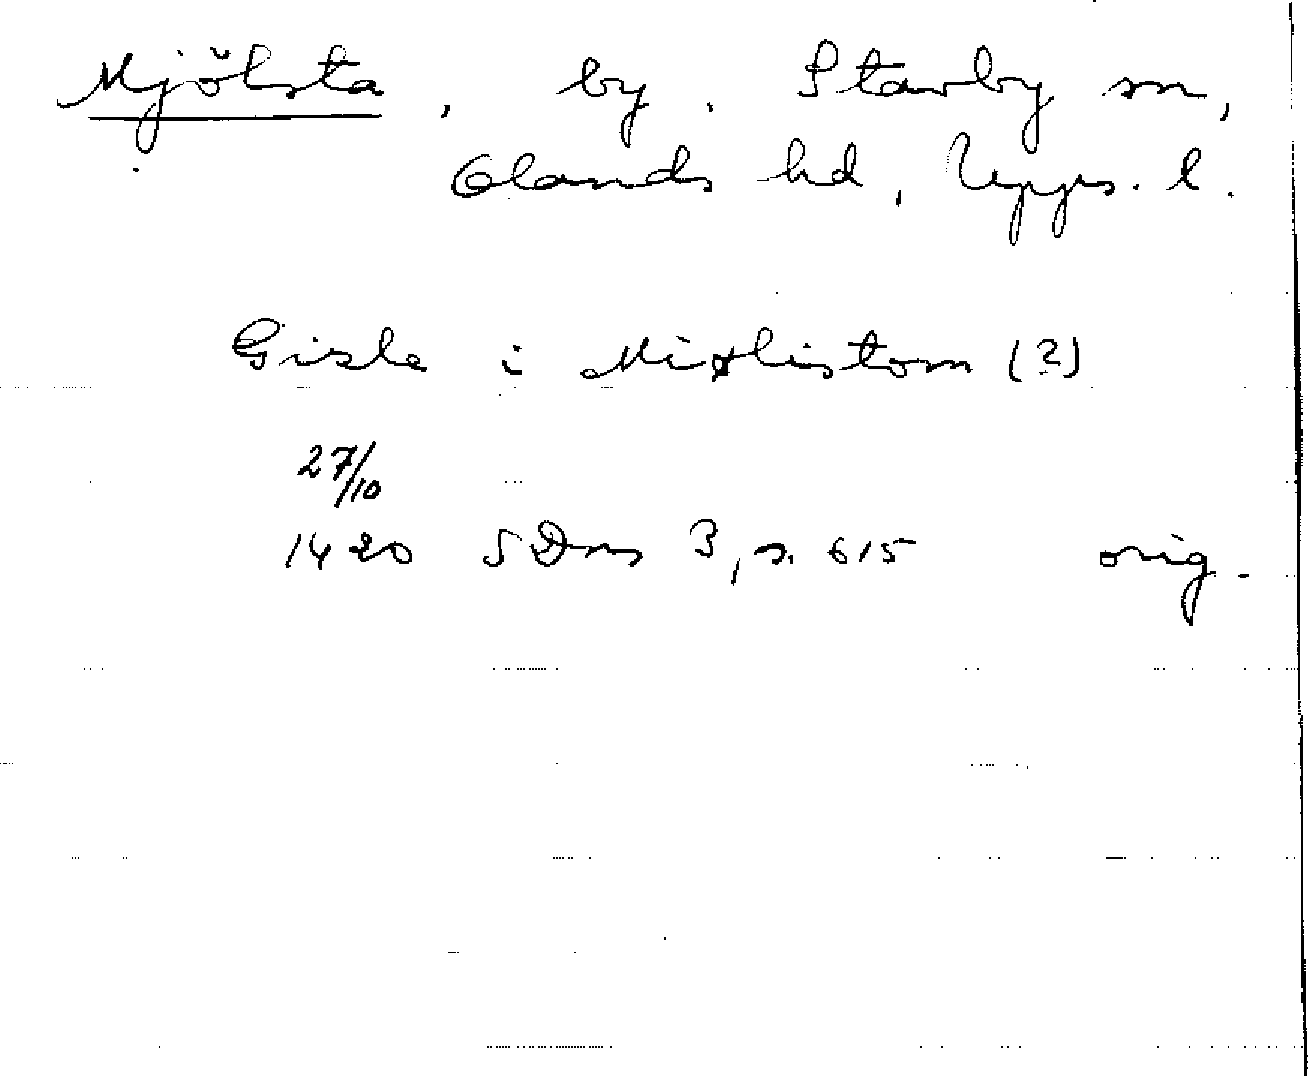 Mjölsta, by. Stavby sn,
Olands hd, Upps. l.
Gisle i Miølistom (?)
27/10
1420 SDns 3, s. 615 orig.